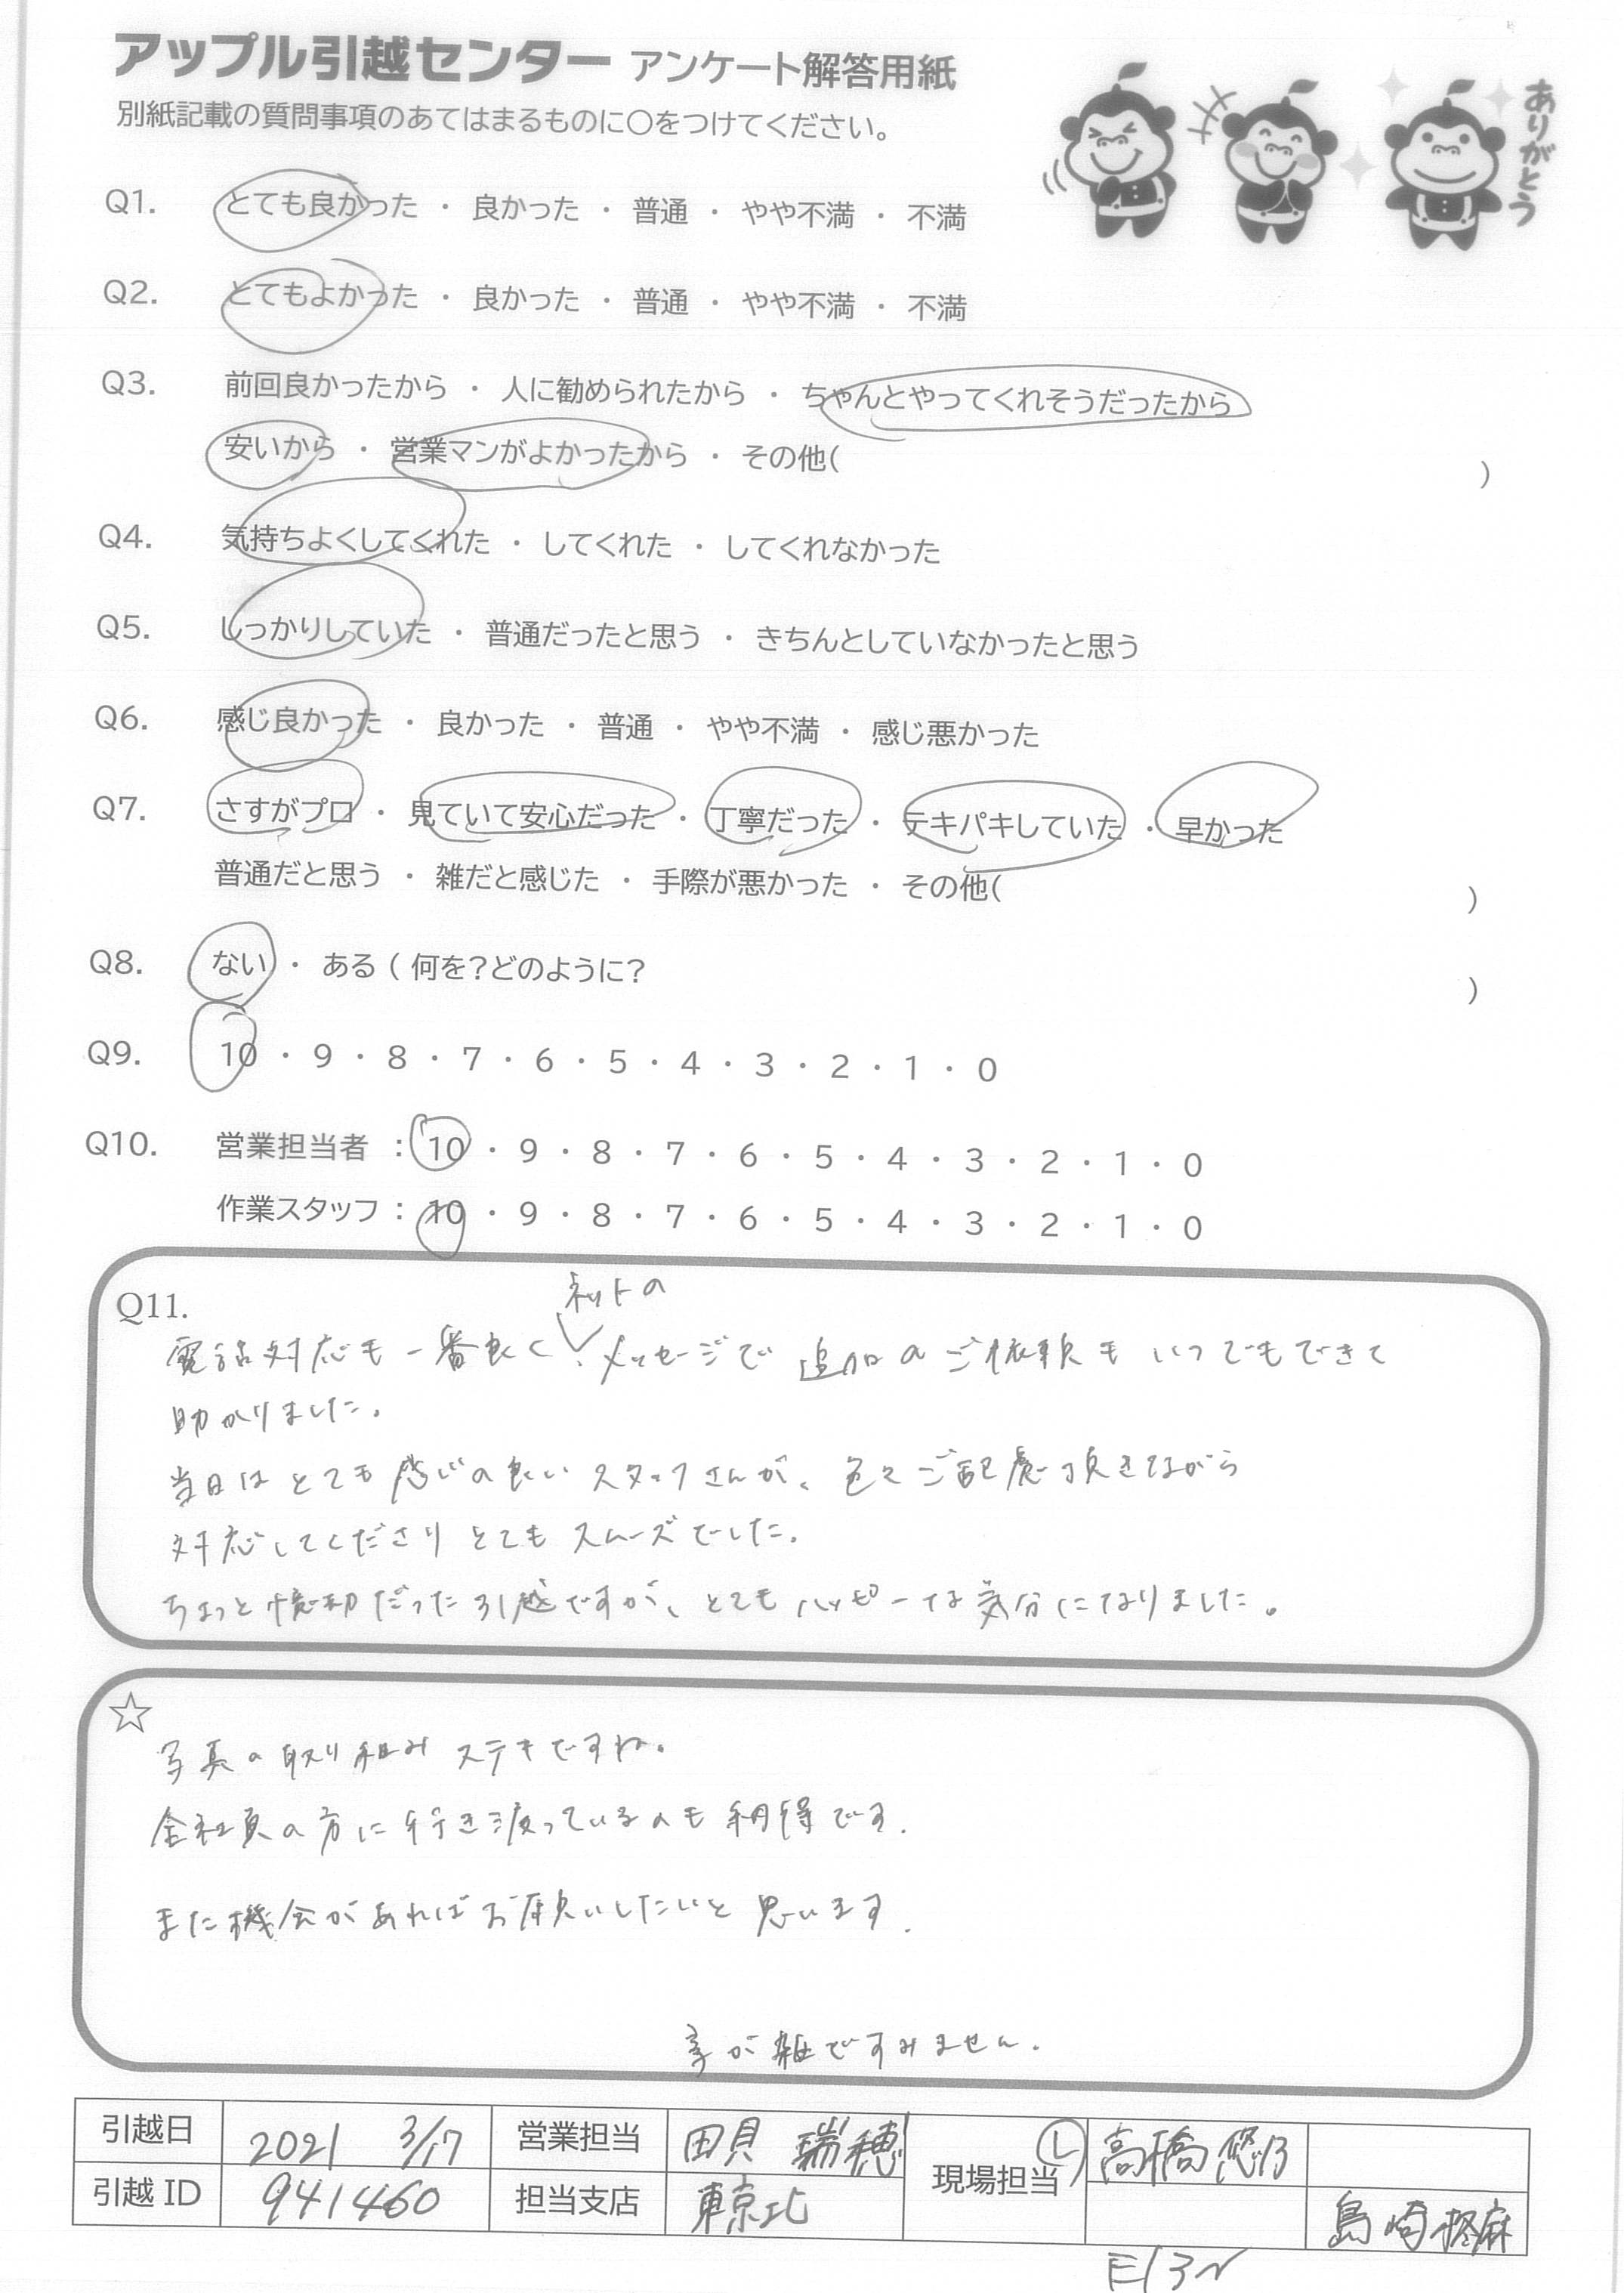 アップル引越センター アンケート解答用紙
別紙記載の質問事項のあてはまるものに○をつけてください。
ありがとう
Q1. とても良かった ・ 良かった ・ 普通 ・ やや不満 ・ 不満
Q2. とてもよかった ・ 良かった ・ 普通 ・ やや不満 ・ 不満
Q3. 前回良かったから ・ 人に勧められたから ・ ちゃんとやってくれそうだったから
安いから ・ 営業マンがよかったから ・ その他( )
Q4. 気持ちよくしてくれた ・ してくれた ・ してくれなかった
Q5. しっかりしていた ・ 普通だったと思う ・ きちんとしていなかったと思う
Q6. 感じ良かった ・ 良かった ・ 普通 ・ やや不満 ・ 感じ悪かった
Q7. さすがプロ ・ 見ていて安心だった ・ 丁寧だった ・ テキパキしていた ・ 早かった
普通だと思う ・ 雑だと感じた ・ 手際が悪かった ・ その他( )
Q8. ない ・ ある ( 何を?どのように? )
Q9. 10 ・ 9 ・ 8 ・ 7 ・ 6 ・ 5 ・ 4 ・ 3 ・ 2 ・ 1 ・ 0
Q10. 営業担当者 : 10 ・ 9 ・ 8 ・ 7 ・ 6 ・ 5 ・ 4 ・ 3 ・ 2 ・ 1 ・ 0
作業スタッフ : 10 ・ 9 ・ 8 ・ 7 ・ 6 ・ 5 ・ 4 ・ 3 ・ 2 ・ 1 ・ 0
Q11.
ネットの
電話対応も一番良く、メッセージで 追加のご依頼も いつでもできて
助かりました。
当日はとても感じの良いスタッフさんが、色々ご配慮頂きながら
対応してくださり とてもスムーズでした。
ちょっと憶劫だった引越ですが、とてもハッピーな気分になりました。
☆
写真の取り組みステキですね。
全社員の方に行き渡っているのも納得です.
また機会があればお願いしたいと思います.
字が雑ですみません.
引越日 2021 3/17 営業担当 田貝 瑞穂 現場担当 Ⓛ 高橋 悠乃
引越 ID 941460 担当支店 東京北 島崎